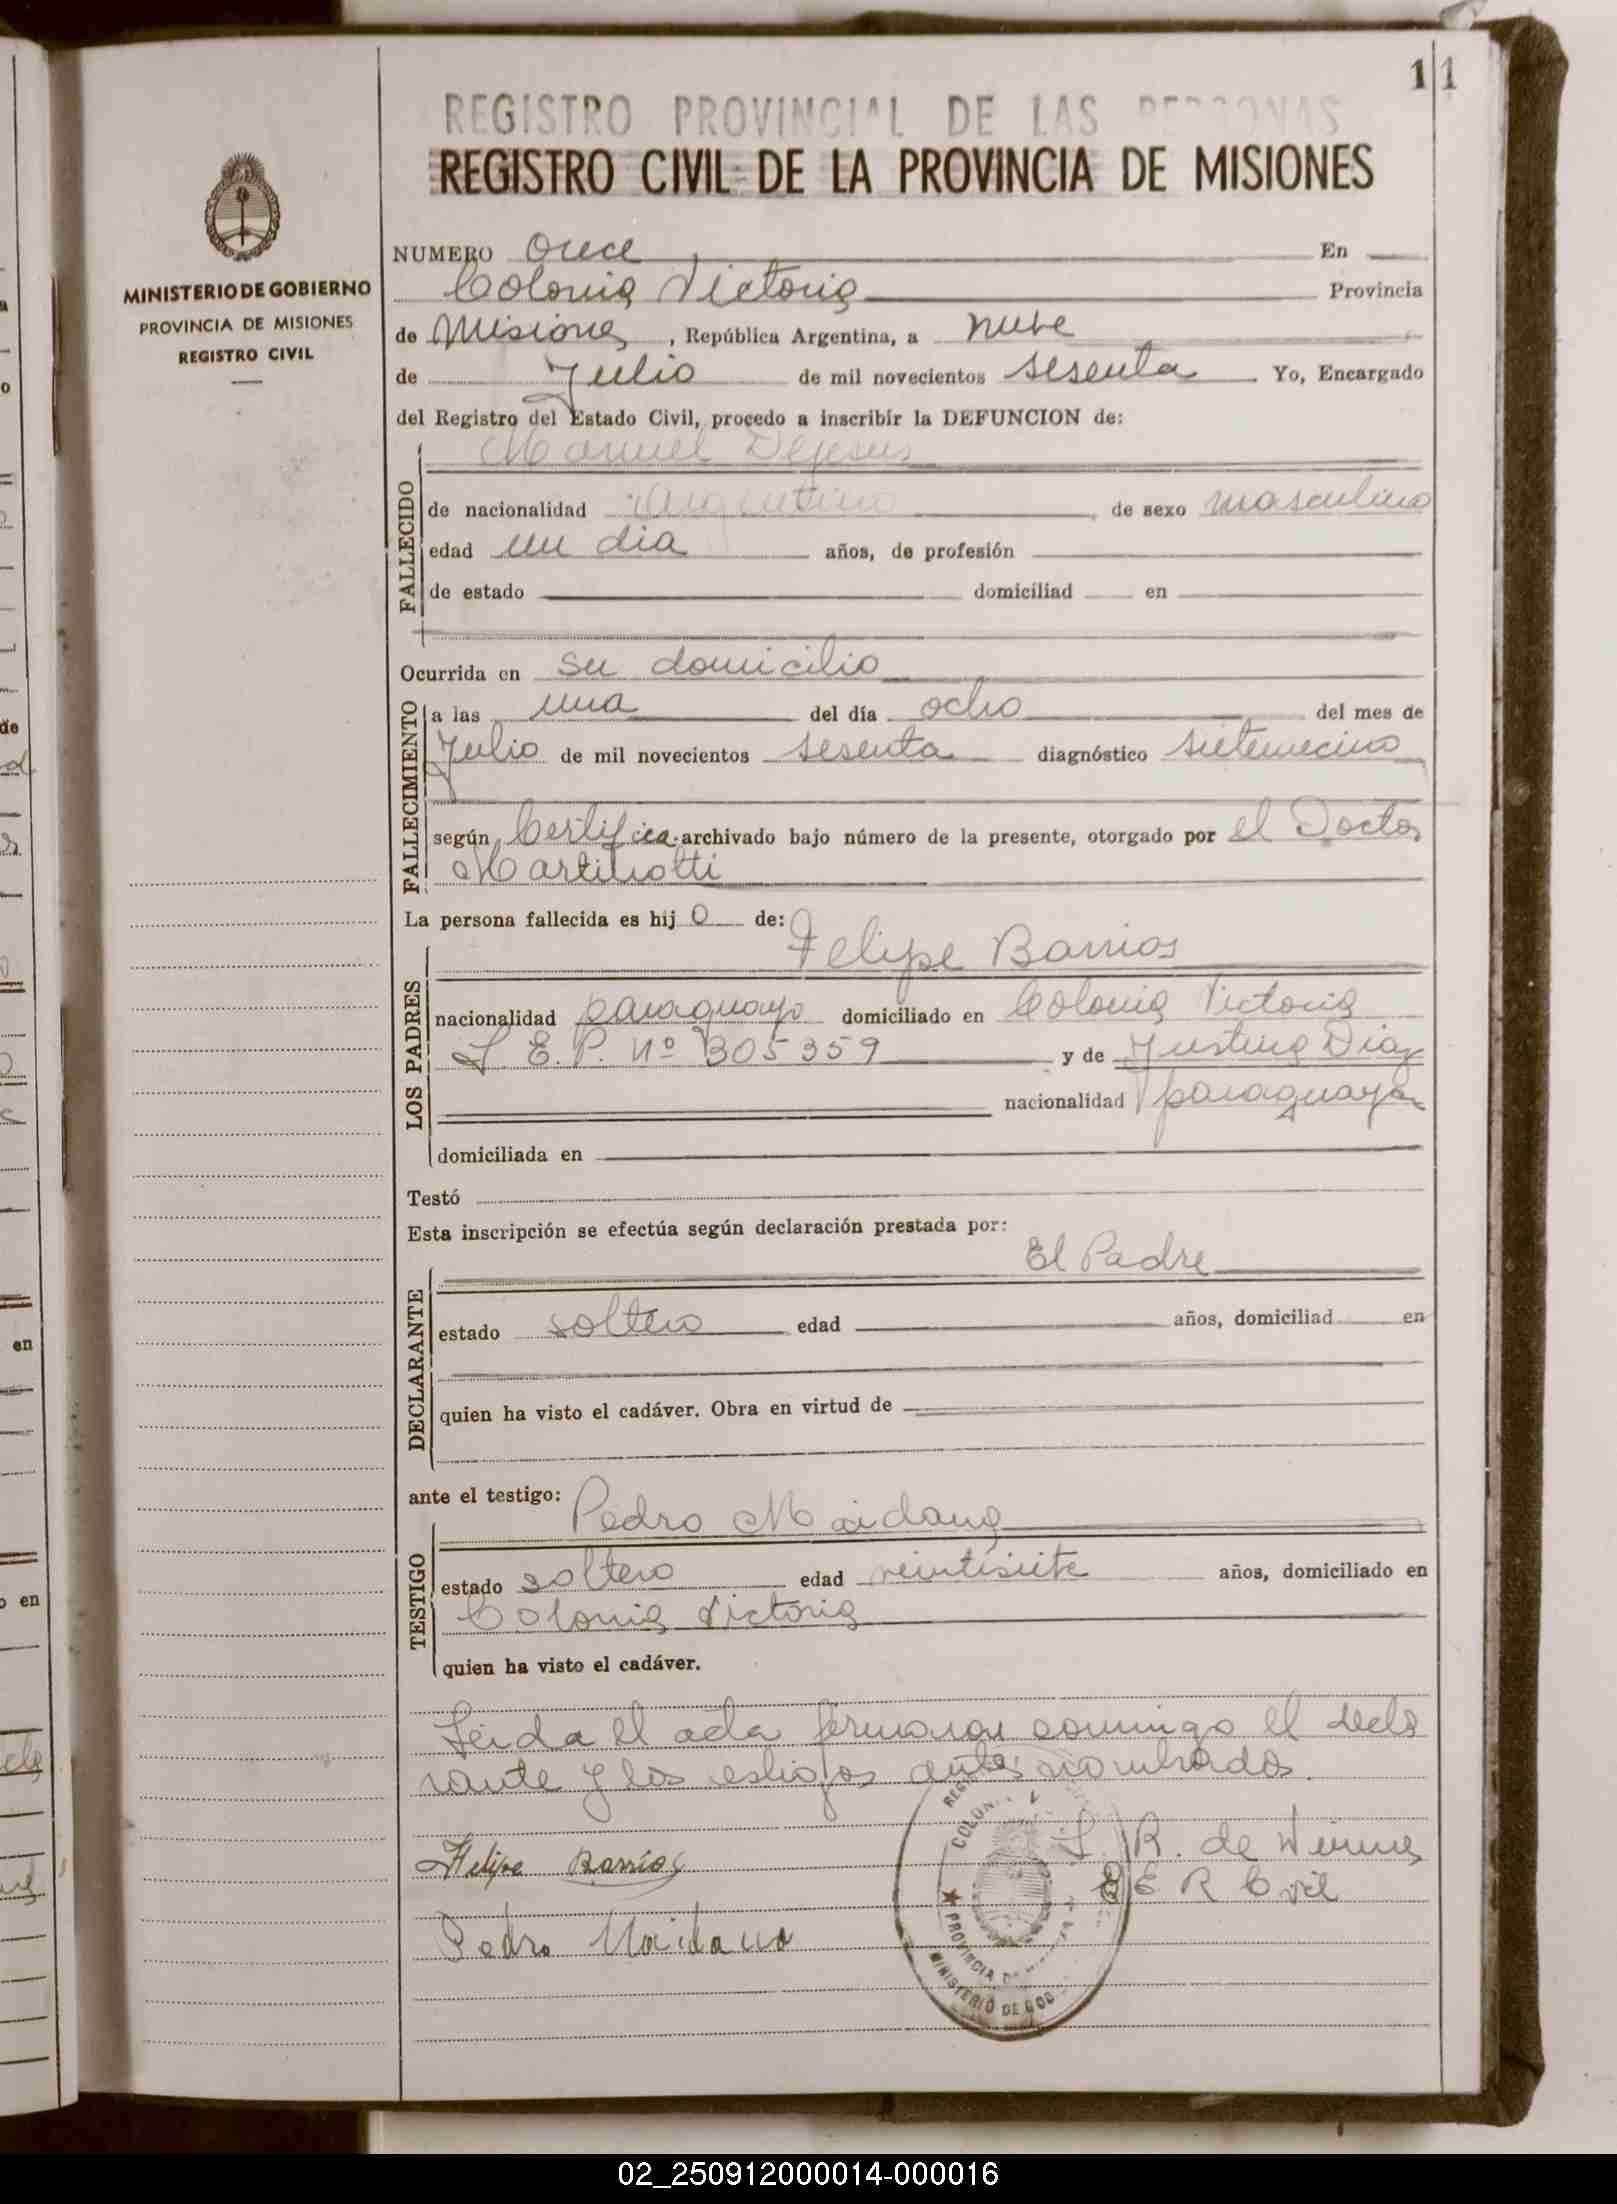 11
REGISTRO PROVINCIAL DE LAS PERSONAS
REGISTRO CIVIL DE LA PROVINCIA DE MISIONES
MINISTERIO DE GOBIERNO
PROVINCIA DE MISIONES
REGISTRO CIVIL
NUMERO Once En
Colonia Victoria Provincia
de Misiones, República Argentina, a nueve
de Julio de mil novecientos sesenta Yo, Encargado
del Registro del Estado Civil, procedo a inscribir la DEFUNCION de:
Manuel Dejesus
FALLECIDO
de nacionalidad argentino de sexo masculino
edad un dia años, de profesión
de estado domiciliad en
Ocurrida en su domicilio
FALLECIMIENTO
a las una del día ocho del mes de
Julio de mil novecientos sesenta diagnóstico sietemecino
según Certifica archivado bajo número de la presente, otorgado por el Doctor
La persona fallecida es hij o de:
Felipe Barrios
LOS PADRES
nacionalidad paraguayo domiciliado en Colonia Victoria
L. E. P. Nº 305359 y de Justina Diaz
nacionalidad paraguaya
domiciliada en
Testó
Esta inscripción se efectúa según declaración prestada por:
El Padre
DECLARANTE
estado soltero edad años, domiciliad en
quien ha visto el cadáver. Obra en virtud de
ante el testigo:
Pedro Maidana
TESTIGO
estado soltero edad veintisiete años, domiciliado en
Colonia Victoria
quien ha visto el cadáver.
Leida el acta firmaron conmigo el decla
rante y los antes nombrados.
Felipe Barrios
L. R. de
E R Civil
Pedro Maidana
COLON
PROVINCIA
MINISTERIO DE GOB
02_250912000014-000016